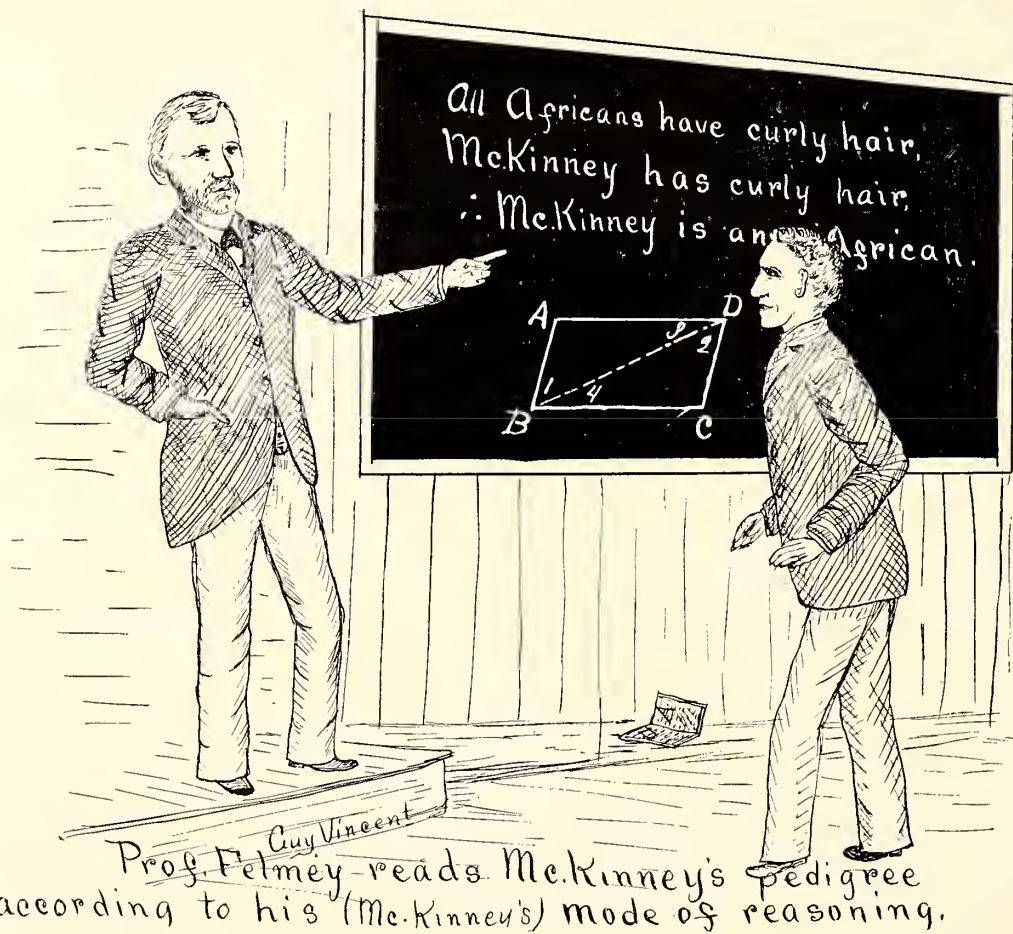 All Africans have curly hair,
McKinney has curly hair,
∴ McKinney is an African.
A D
3
2
1
4
B C
Guy Vincent
Prof. Felmey reads McKinney's pedigree
according to his (McKinney's) mode of reasoning.